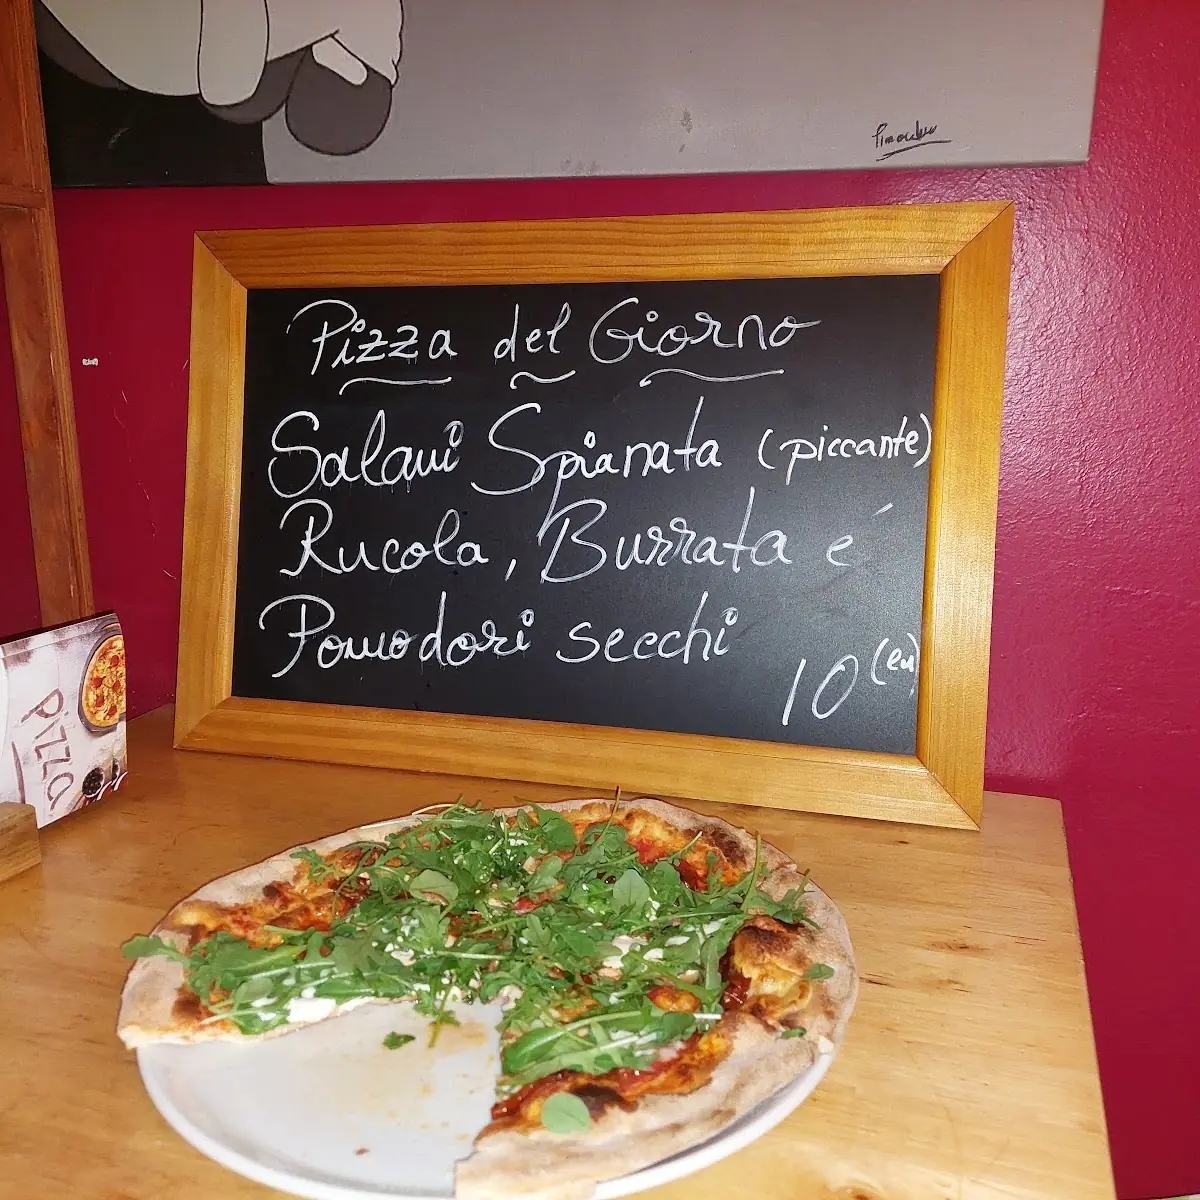 Pizza del Giorno
Salami Spianata (piccante)
Rucola, Burrata é
Pomodori secchi
10 (eu)
Pizza